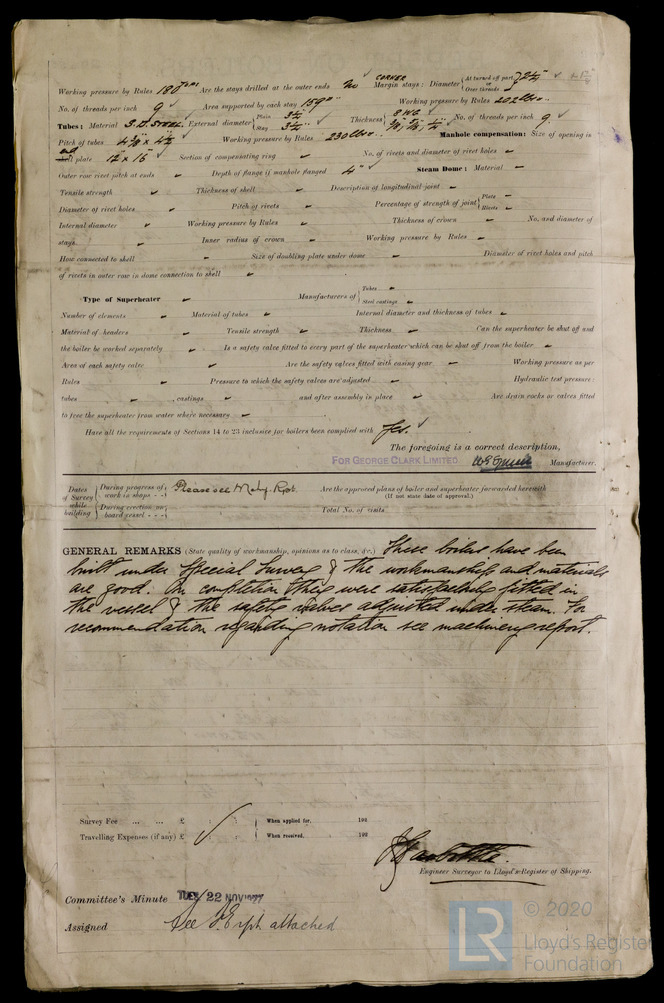 Working pressure by Rules 180 Are the stays drilled at the outer ends No CORNER Margin stays: Diameter { At turned off part or Over threads
No. of threads per inch 9 Area supported by each stay 159 Working pressure by Rules 202 lbs
Tubes: Material S.D. Steel External diameter { Plain 3½" Stay 3½" Thickness { 8 WG No. of threads per inch 9
Pitch of tubes Working pressure by Rules 230 lbs Manhole compensation: Size of opening in
end plate 12 x 16 Section of compensating ring No. of rivets and diameter of rivet holes
Outer row rivet pitch at ends Depth of flange if manhole flanged 4" Steam Dome: Material
Tensile strength Thickness of shell Description of longitudinal joint
Diameter of rivet holes Pitch of rivets Percentage of strength of joint { Plate Rivets
Internal diameter Working pressure by Rules Thickness of crown No. and diameter of
stays Inner radius of crown Working pressure by Rules
How connected to shell Size of doubling plate under dome Diameter of rivet holes and pitch
of rivets in outer row in dome connection to shell
Type of Superheater Manufacturers of { Tubes Steel castings
Number of elements Material of tubes Internal diameter and thickness of tubes
Material of headers Tensile strength Thickness Can the superheater be shut off and
the boiler be worked separately Is a safety valve fitted to every part of the superheater which can be shut off from the boiler
Area of each safety valve Are the safety valves fitted with easing gear Working pressure as per
Rules Pressure to which the safety valves are adjusted Hydraulic test pressure:
tubes , castings and after assembly in place Are drain cocks or valves fitted
to free the superheater from water where necessary
Have all the requirements of Sections 14 to 23 inclusive for boilers been complied with Yes.
The foregoing is a correct description,
FOR GEORGE CLARK LIMITED. Manufacturer.
Dates of Survey while building { During progress of work in shops - - Please see Mchy. Rpt. Are the approved plans of boiler and superheater forwarded herewith (If not state date of approval.)
During erection on board vessel - - - Total No. of visits
GENERAL REMARKS (State quality of workmanship, opinions as to class, &c.) These boilers have been
built under Special Survey & the workmanship and materials
are good. On completion they were satisfactorily fitted in
the vessel & the safety valves adjusted under steam. For
recommendation regarding notation see machinery report.
Survey Fee ... ... £ : : When applied for, 192
Travelling Expenses (if any) £ : : When received, 192
Engineer Surveyor to Lloyd's Register of Shipping.
Committee's Minute TUES 22 NOV 1927
Assigned See attached
LR © 2020
Lloyd's Register
Foundation